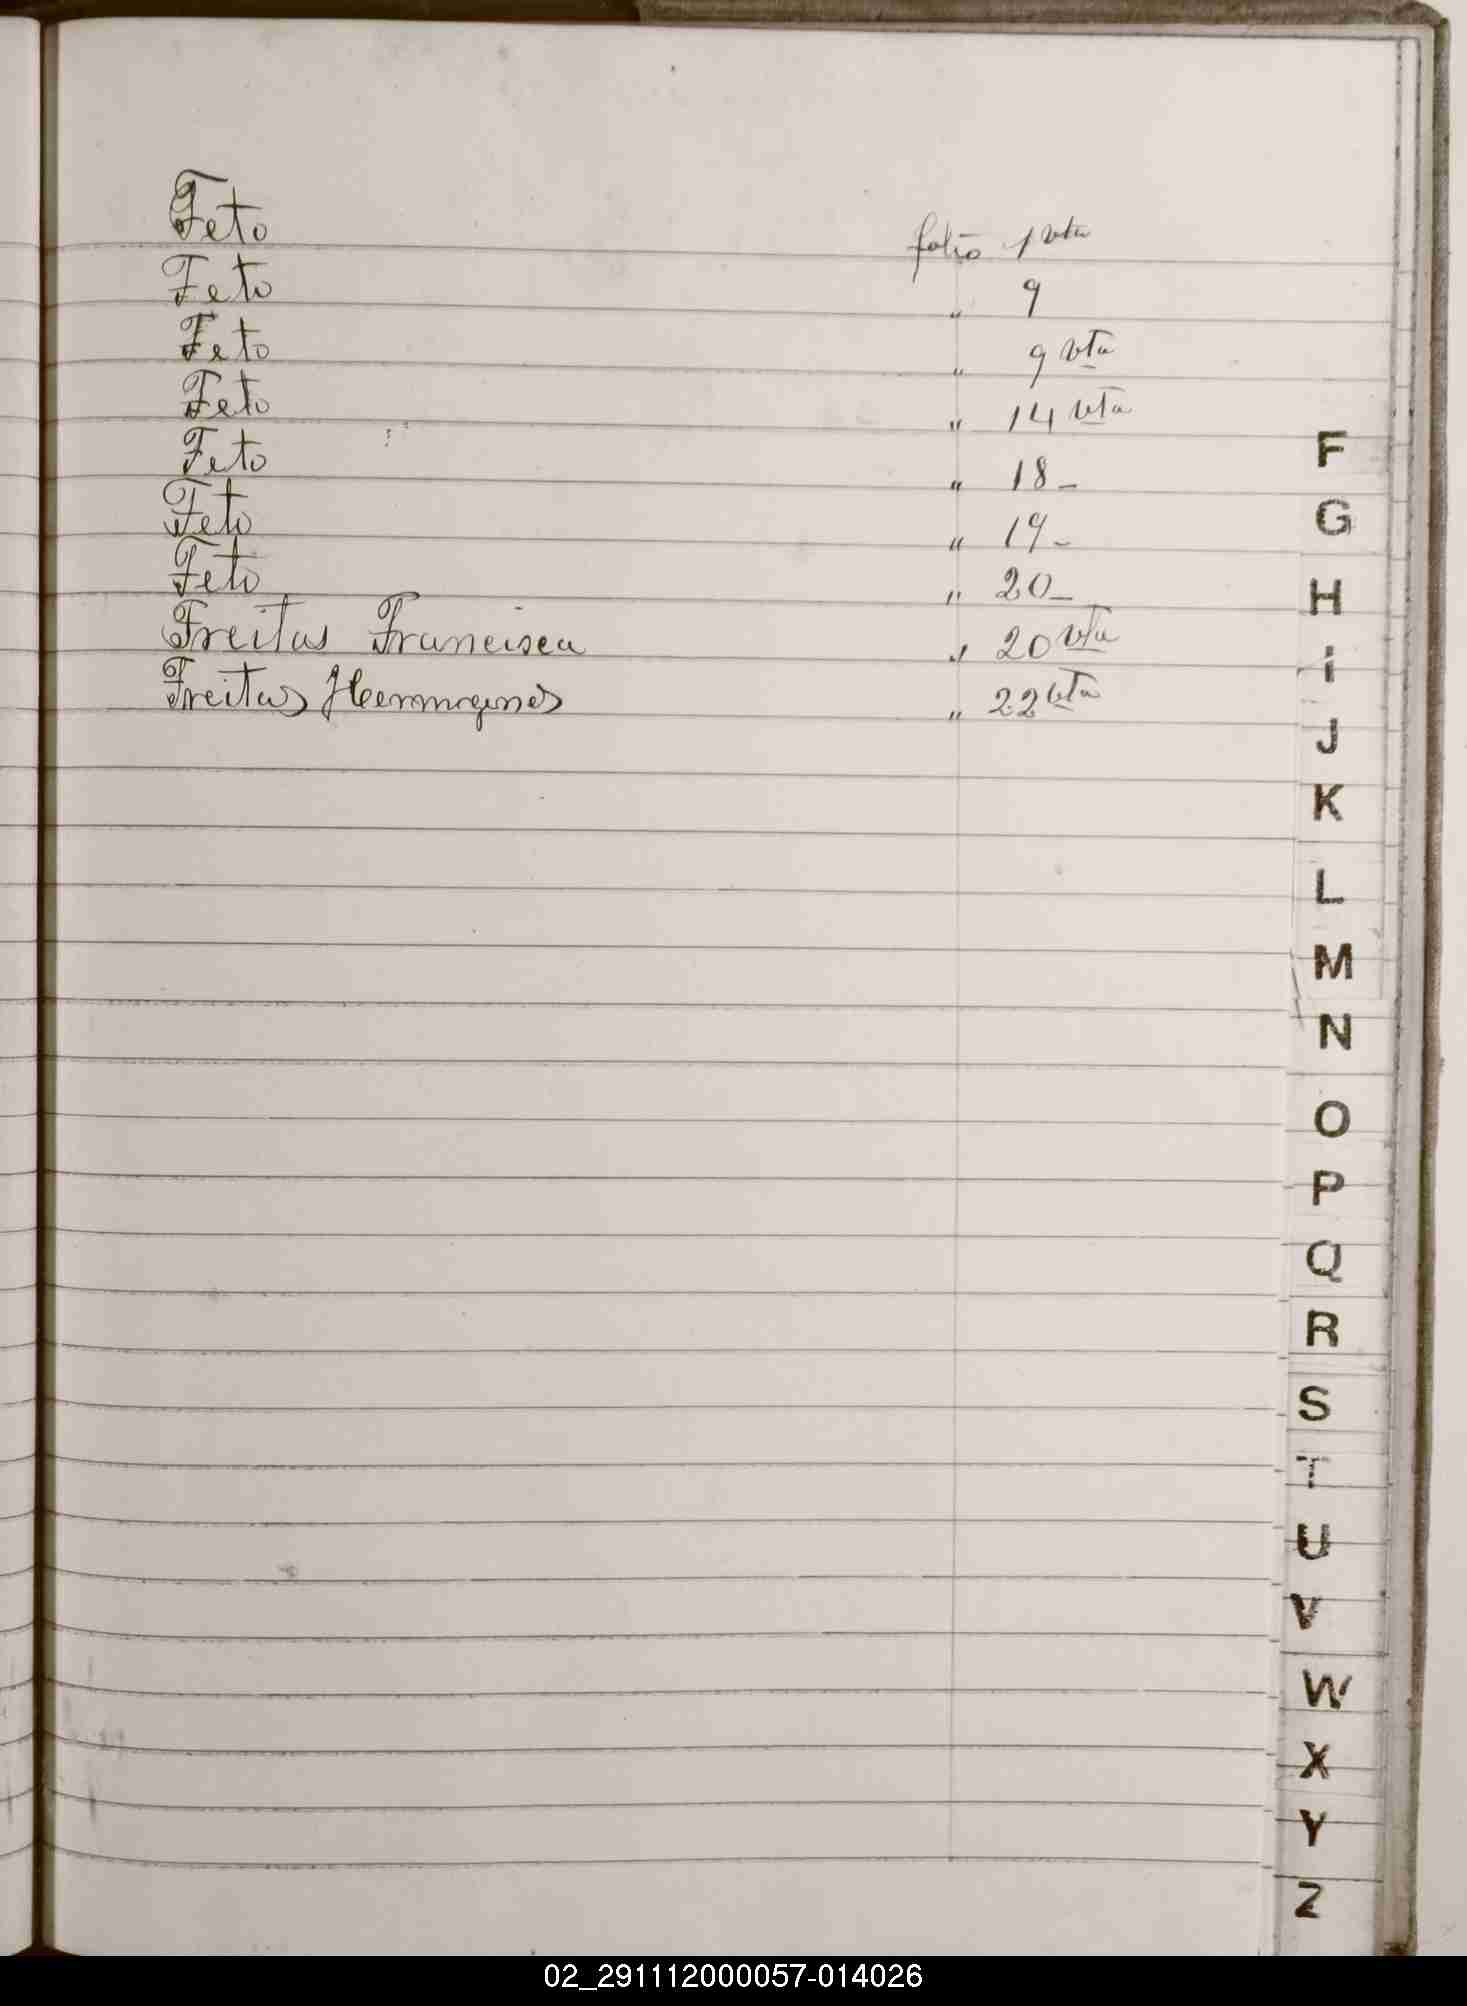 Feto folio 1 vta
Feto " 9
Feto " 9 vta
Feto " 14 vta
Feto " 18 -
Feto " 19 -
Feto " 20 -
Freitas Francisca " 20 vta
Freitas Hermogenes " 22 vta
F
G
H
i
J
K
L
M
N
O
P
Q
R
S
T
U
V
W
X
Y
Z
02_291112000057-014026